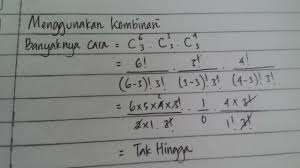 Menggunakan Kombinasi
Banyaknya Cara = C⁶₃ . C³₃ . C⁴₃
= 6! / (6-3)! 3! . 3! / (3-3)! 3! . 4! / (4-3)! 3!
= 6x5x4x3! / 3x1.3! . 1 / 0 . 4x3! / 1! 3!
= Tak Hingga